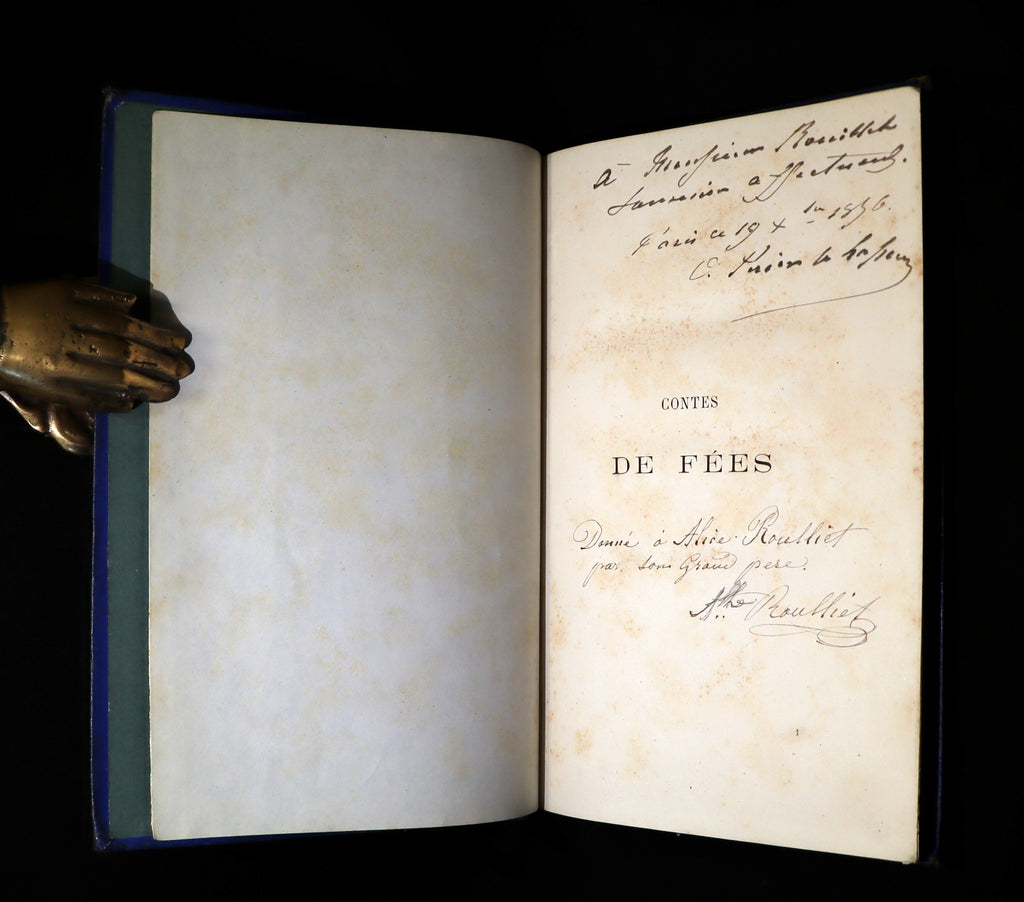 à Monsieur Rouillet
Souvenir affectueux.
Paris ce 19 x bre 1856.
C.
CONTES
DE FÉES
Donné à Alice Roulliet
par son Grand pere.
Roulliet